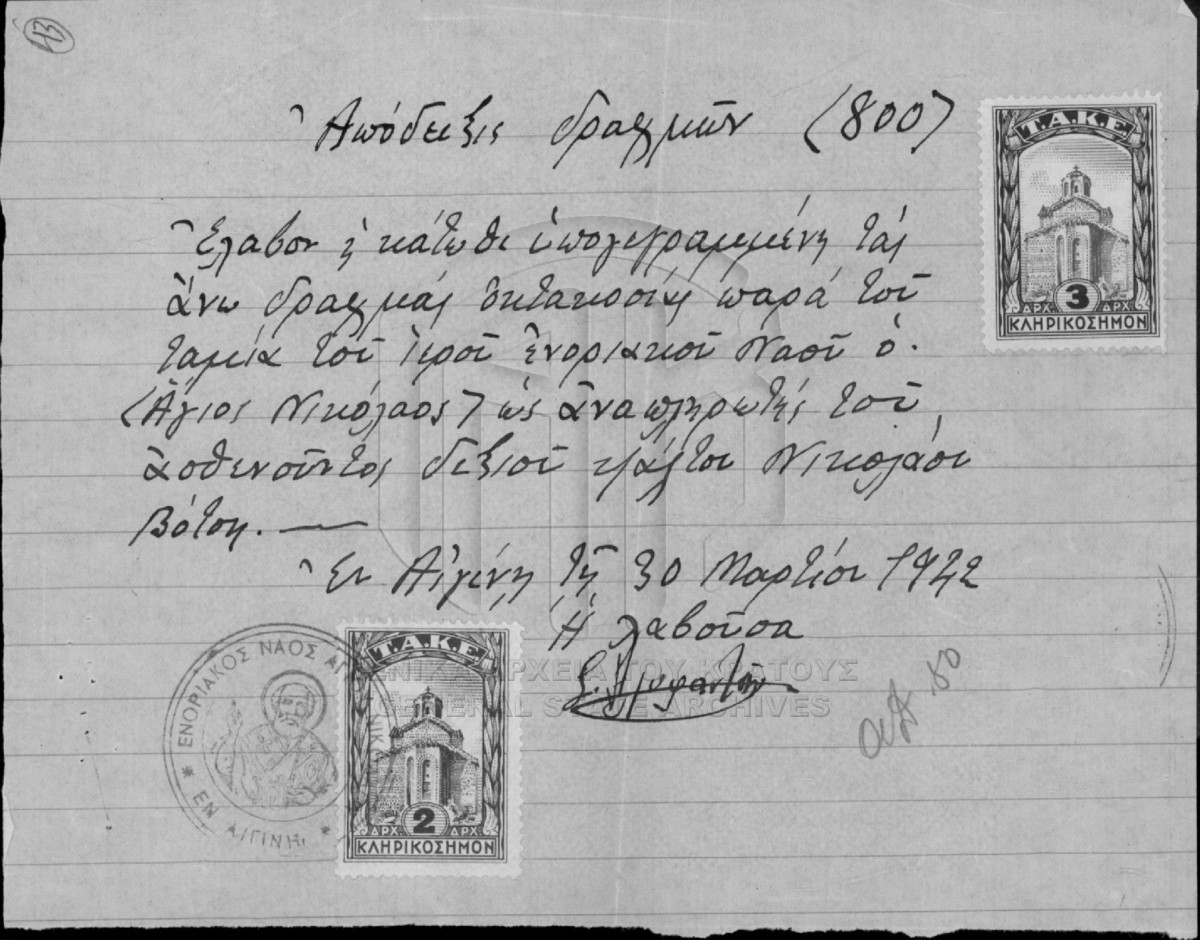 73
Ἀπόδειξις δραχμῶν (800)
Τ.Α.Κ.Ε
3
ΔΡΧ ΔΡΧ
ΚΛΗΡΙΚΟΣΗΜΟΝ
Ἔλαβον ἡ κάτωθι ὑπογεγραμμένη τὰς
ἄνω δραχμὰς ὀκτακοσίας παρὰ τοῦ
ταμία τοῦ ἱεροῦ ἐνοριακοῦ Ναοῦ ὁ
(Ἅγιος Νικόλαος) ὡς ἀναπληρωτής τοῦ
ἀσθενοῦντος δεξιοῦ ψάλτου Νικολάου
Βότση.
Ἐν Αἰγίνῃ τῇ 30 Μαρτίου 1942
Ἡ λαβοῦσα
ΓΕΝΙΚΑ ΑΡΧΕΙΑ ΤΟΥ ΚΡΑΤΟΥΣ
GENERAL STATE ARCHIVES
ΕΝΟΡΙΑΚΟΣ ΝΑΟΣ ΑΓ ΝΙΚΟ
* ΕΝ ΑΙΓΙΝΗ *
Τ.Α.Κ.Ε
2
ΔΡΧ ΔΡΧ
ΚΛΗΡΙΚΟΣΗΜΟΝ